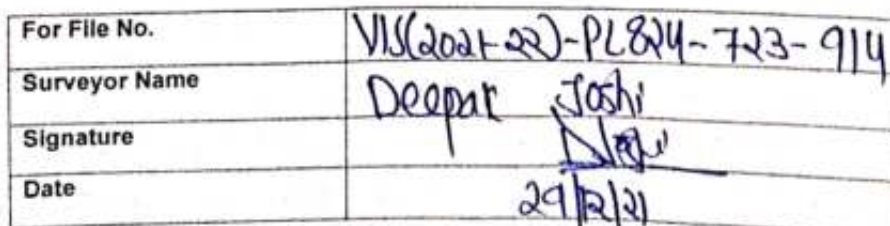 For File No. VIS(2021-22)-PL824-723-914
Surveyor Name Deepak Joshi
Signature
Date 29/12/21